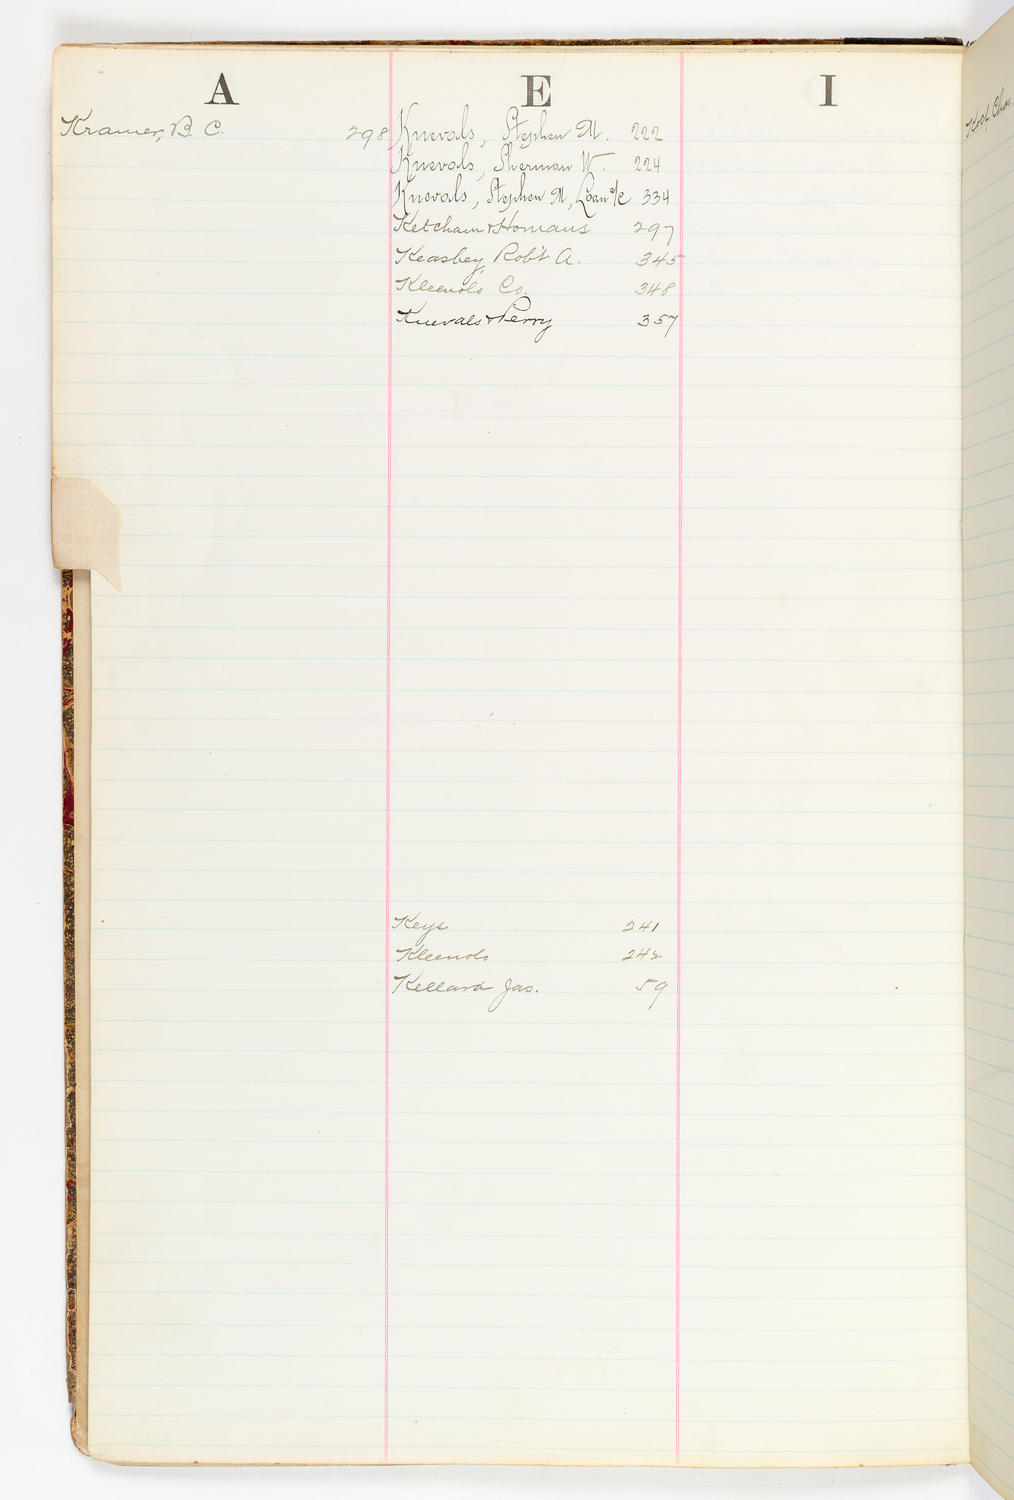 A
Kramer, B. C. 298
E
Knevals, Stephen M. 222
Knevals, Sherman W. 224
Knevals, Stephen M, Loan a/c 334
Ketcham & Homans 297
Keasbey, Rob't A. 345
Kleenols Co. 348
Knevals & Perry 357
Keys 241
Kleenols 242
Kellard Jas. 59
I